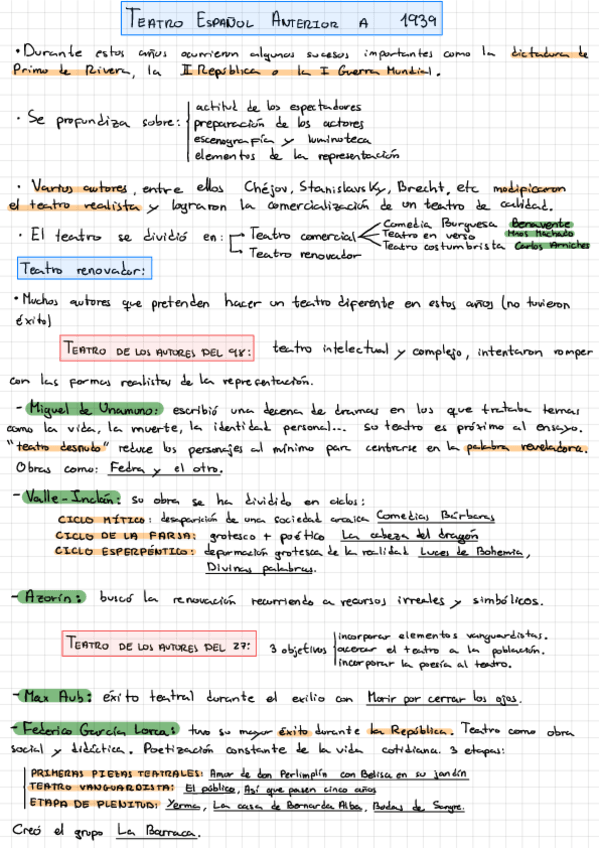 TEATRO ESPAÑOL ANTERIOR A 1939
• Durante estos años ocurrieron algunos sucesos importantes como la dictadura de
Primo de Rivera, la II República o la I Guerra Mundial.
• Se profundiza sobre:
actitud de los espectadores
preparación de los actores
escenografía y luminoteca
elementos de la representación
• Varios autores, entre ellos Chéjov, Stanislavsky, Brecht, etc modificaron
el teatro realista y lograron la comercialización de un teatro de calidad.
• El teatro se dividió en:
Teatro comercial
Comedia Burguesa Benavente
Teatro en verso Hnos Machado
Teatro costumbrista Carlos Arniches
Teatro renovador
Teatro renovador:
• Muchos autores que pretenden hacer un teatro diferente en estos años (no tuvieron
éxito)
TEATRO DE LOS AUTORES DEL 98: teatro intelectual y complejo, intentaron romper
con las formas realistas de la representación.
- Miguel de Unamuno: escribió una decena de dramas en los que trataba temas
como la vida, la muerte, la identidad personal... Su teatro es próximo al ensayo.
"teatro desnudo" reduce los personajes al mínimo para centrarse en la palabra reveladora.
Obras como: Fedra y el otro.
- Valle-Inclán: su obra se ha dividido en ciclos:
CICLO MÍTICO: desaparición de una sociedad arcaica Comedias Bárbaras
CICLO DE LA FARSA: grotesco + poético La cabeza del dragón
CICLO ESPERPÉNTICO: deformación grotesca de la realidad Luces de Bohemia,
Divinas palabras.
- Azorín: buscó la renovación recurriendo a recursos irreales y simbólicos.
TEATRO DE LOS AUTORES DEL 27: 3 objetivos
incorporar elementos vanguardistas.
acercar el teatro a la población.
incorporar la poesía al teatro.
- Max Aub: éxito teatral durante el exilio con Morir por cerrar los ojos.
- Federico García Lorca: tuvo su mayor éxito durante la República. Teatro como obra
social y didáctica. Poetización constante de la vida cotidiana. 3 etapas:
PRIMERAS PIEZAS TEATRALES: Amor de don Perlimplín con Belisa en su jardín
TEATRO VANGUARDISTA: El público, Así que pasen cinco años
ETAPA DE PLENITUD: Yerma, La casa de Bernarda Alba, Bodas de Sangre.
Creó el grupo La Barraca.